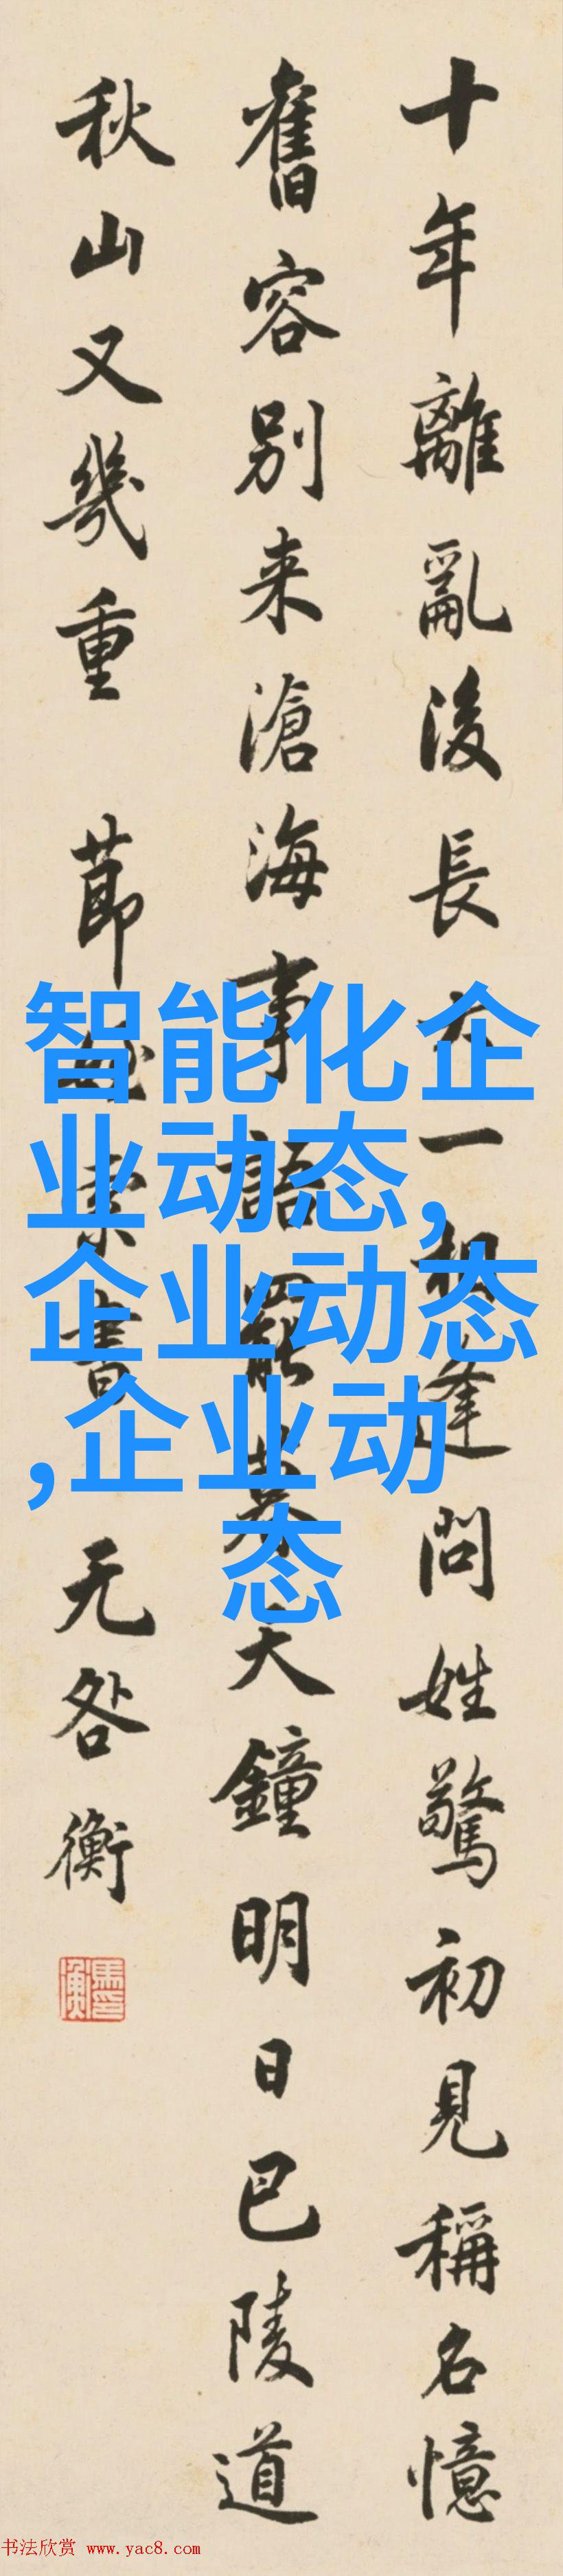 十年離亂後長大一相逢問姓驚初見稱名憶
舊容別来滄海事語罷暮天鐘明日巴陵道
秋山又幾重 莭索書 无咎衡
馬衡印
智能化企
业动态,
企业动态
,企业动
态
书法欣赏 www.yac8.com